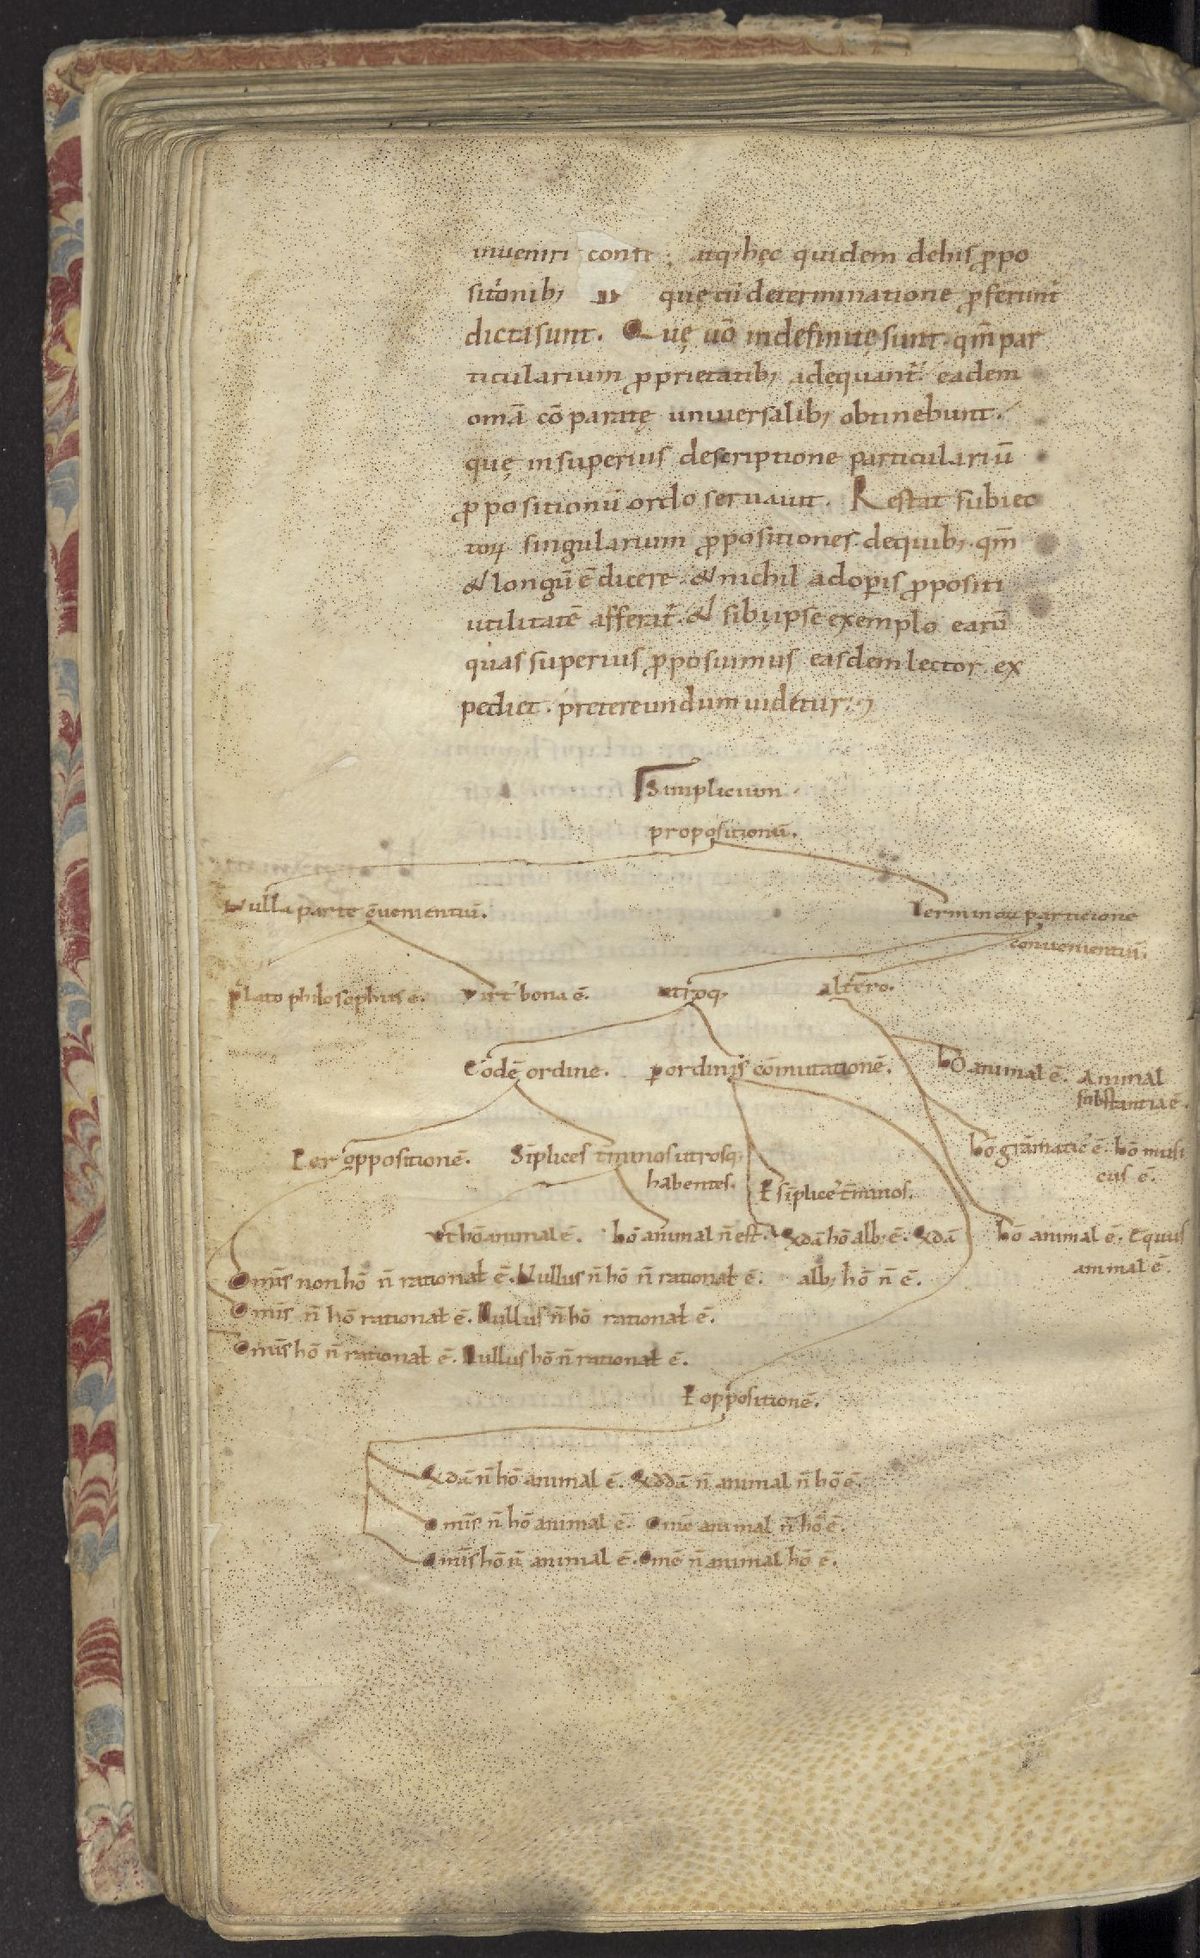 inveniri conti. atq; hęc quidem dehis ꝓpo
sitionib; quę cū determinatione ꝓferunt
dictasunt. Quę uō indefinitę sunt. qm̄ par
ticularium ꝓprietatib; adęquant᷑ eadem
omā cōparatę universalib; obtinebunt.
quę insuperius descriptione particulariū
ꝓpositionū ordo servavit. Restat subiec
toꝝ singularum ꝓpositiones. dequib; qm̄
& longū ē dicere. & nichil adoꝑis ꝓpositi
utilitatē afferat᷑. & sibi ipse exemplo earū
quas superius ꝓposuimus easdem lector ex
pediet. p̄tereundum videtur.
Simplicium
propositionū.
Nulla parte ꝯvenientiū.
Termino ꝟ participatione
convenientiū.
Plato philosophus ē. Virt᷑ bona ē. utroq; altero.
Eodē ordine. ꝑ ordinis cōmutationē. hō animal ē. Animal
substantia ē.
Per oppositionē. Siplices tminos utrosq;
habentes. P siplices t̄minos. hō grāmatic᷑ ē. hō musi
cus ē.
Ut hō animal ē. hō animal n̄ est. Qdā hō alb; ē. Qdā
alb; hō n̄ ē. hō animal ē. Equus
animal ē.
Omīs non hō n̄ rational ē. Nullus n̄ hō n̄ rational ē.
Omīs n̄ hō rational ē. Nullus n̄ hō rational ē.
Omīs hō n̄ rational ē. Nullus hō n̄ rational ē.
P oppositionē.
Qdā n̄ hō animal ē. Qddā n̄ animal n̄ hō ē.
Omīs n̄ hō animal ē. Omē animal n̄ hō ē.
Omīs hō n̄ animal ē. Omē n̄ animal hō ē.